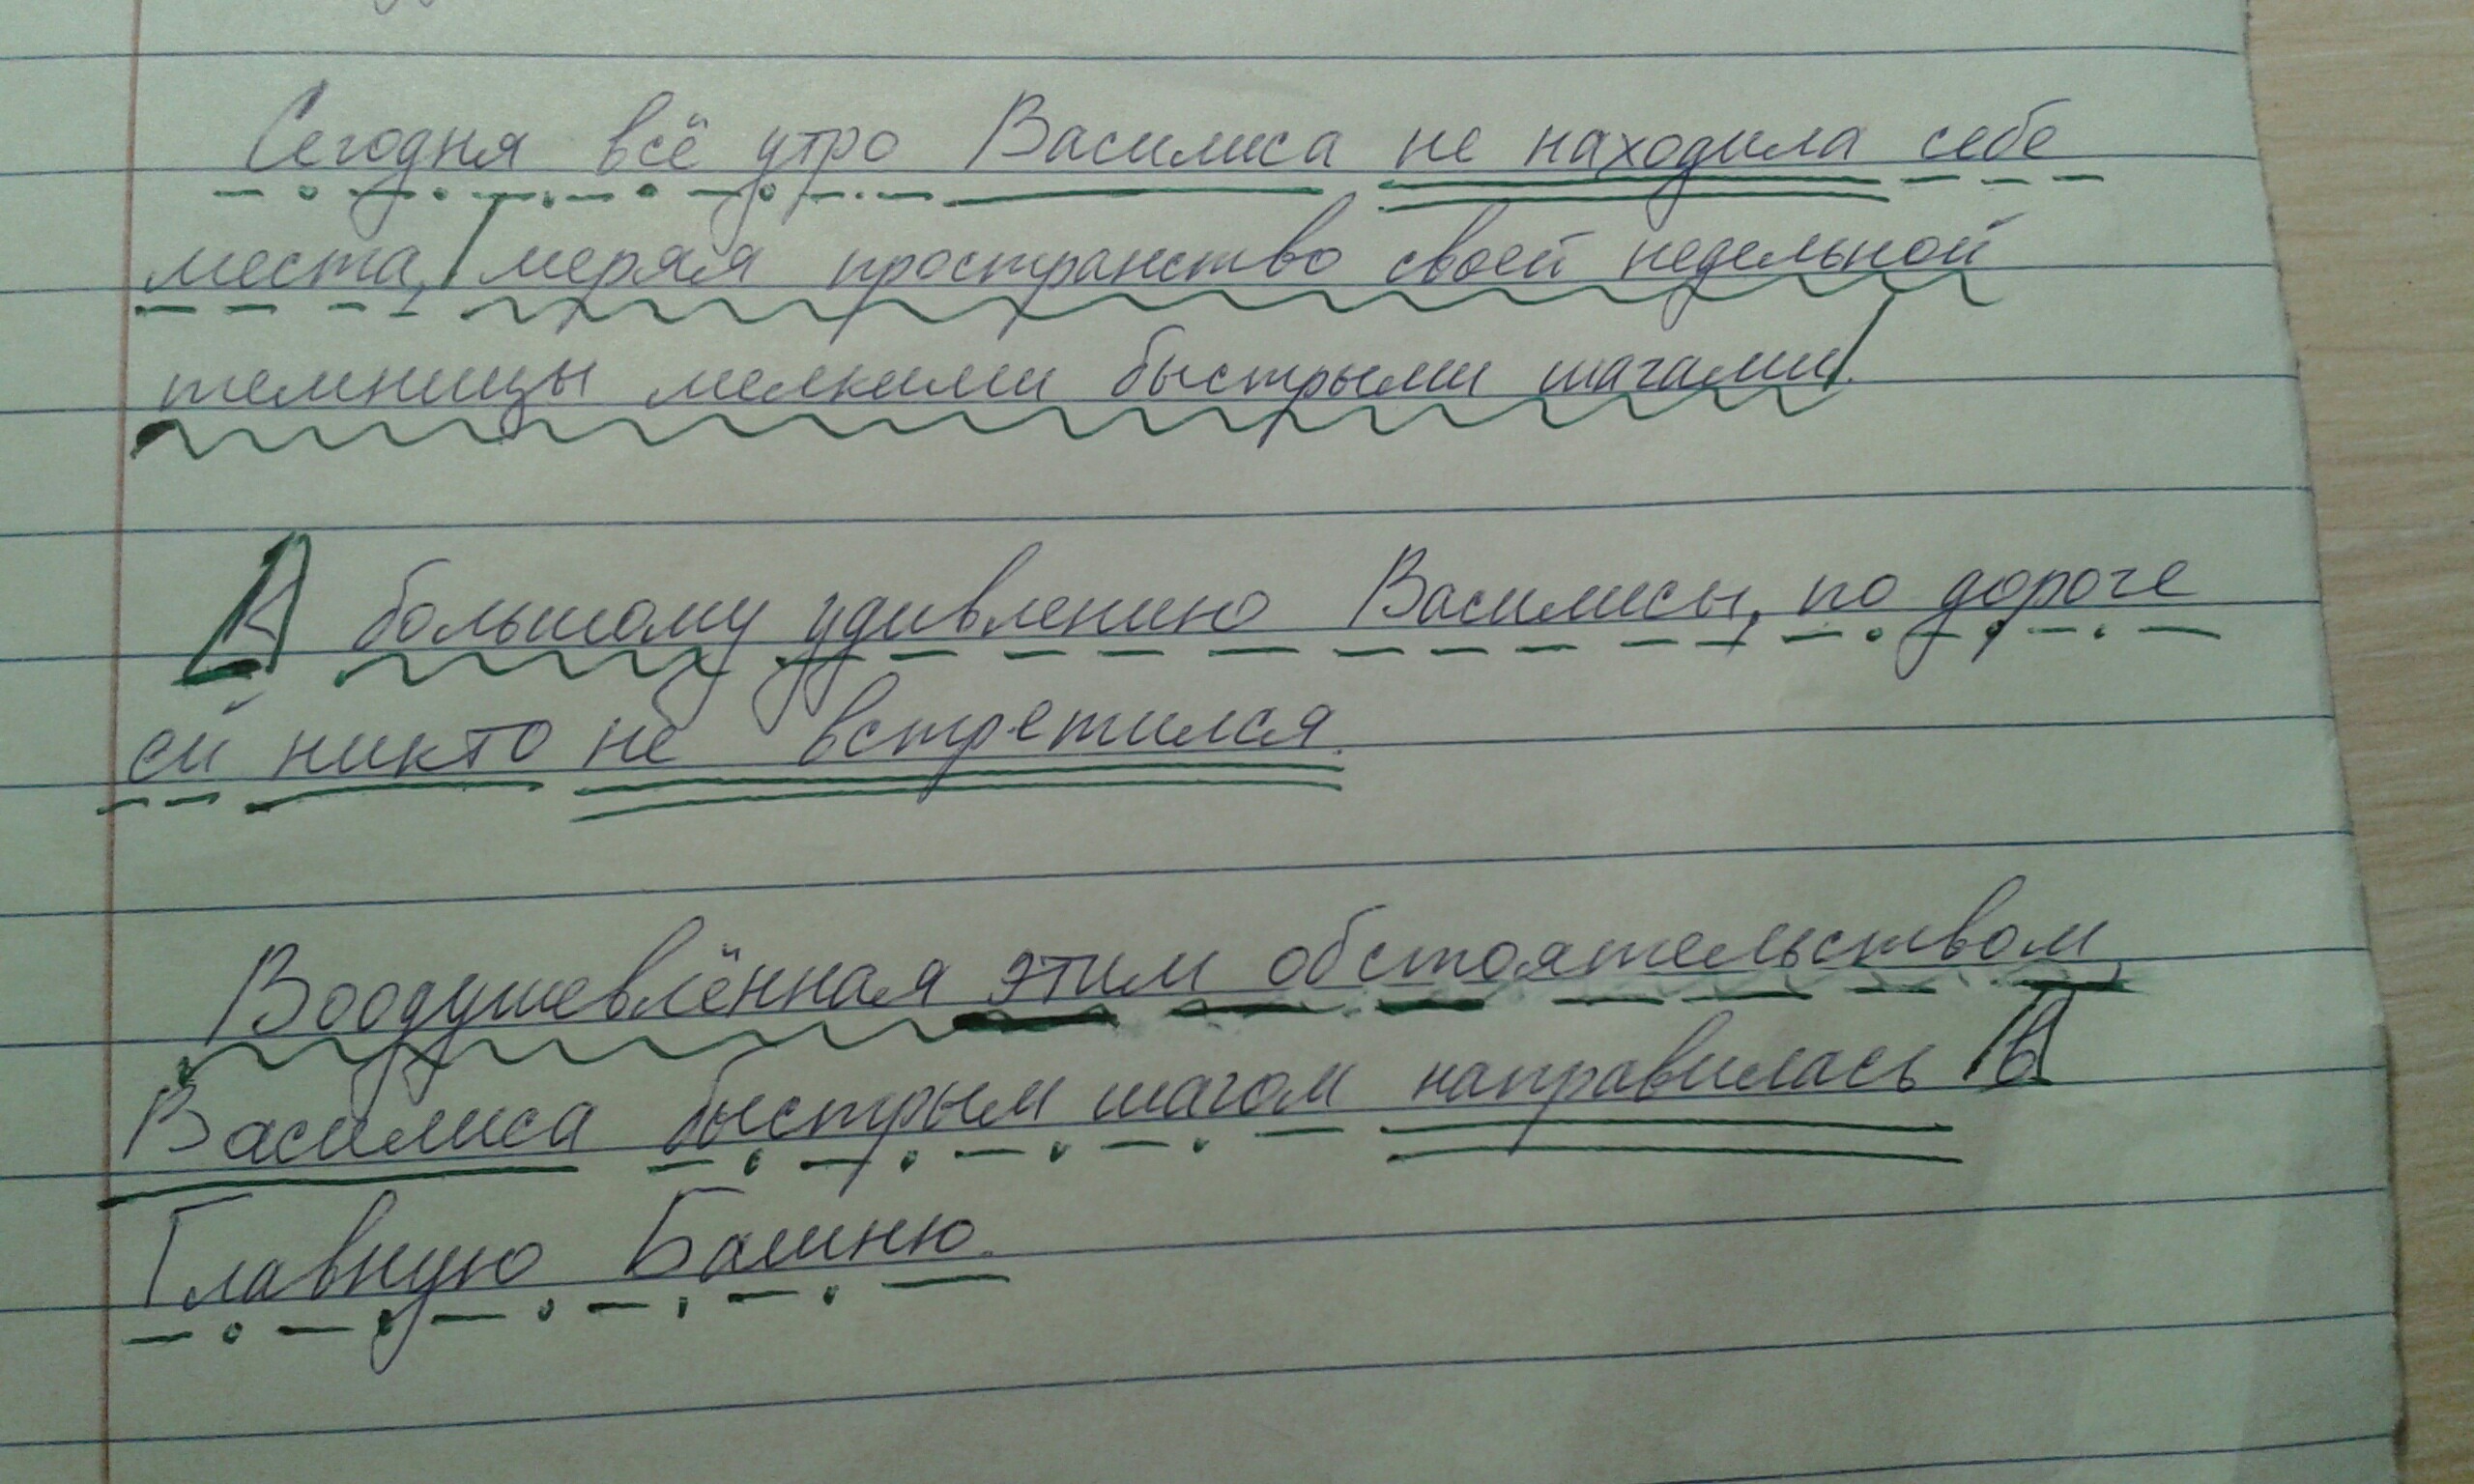 Сегодня всё утро Василиса не находила себе
места, меряя пространство своей недельной
темницы мелкими быстрыми шагами.
К большому удивлению Василисы, по дороге
ей никто не встретился.
Воодушевлённая этим обстоятельством,
Василиса быстрым шагом направилась в
Главную Башню.